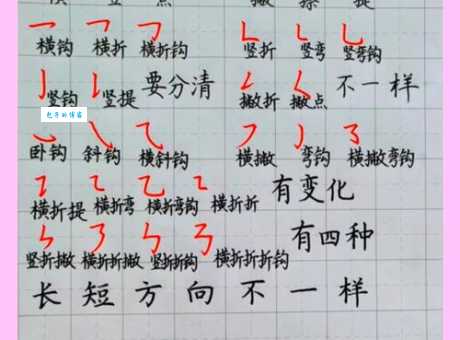 横钩 横折 横折钩 竖折 竖弯 竖弯钩
竖钩 竖提 要分清 撇折 撇点 不一样
包子的博客
卧钩 斜钩 横斜钩 横撇 弯钩 横撇弯钩
横折提 横折弯 横折弯钩 横折折 有变化
竖折撇 横折折撇 竖折折钩 横折折折钩 有四种
长短方向不一样